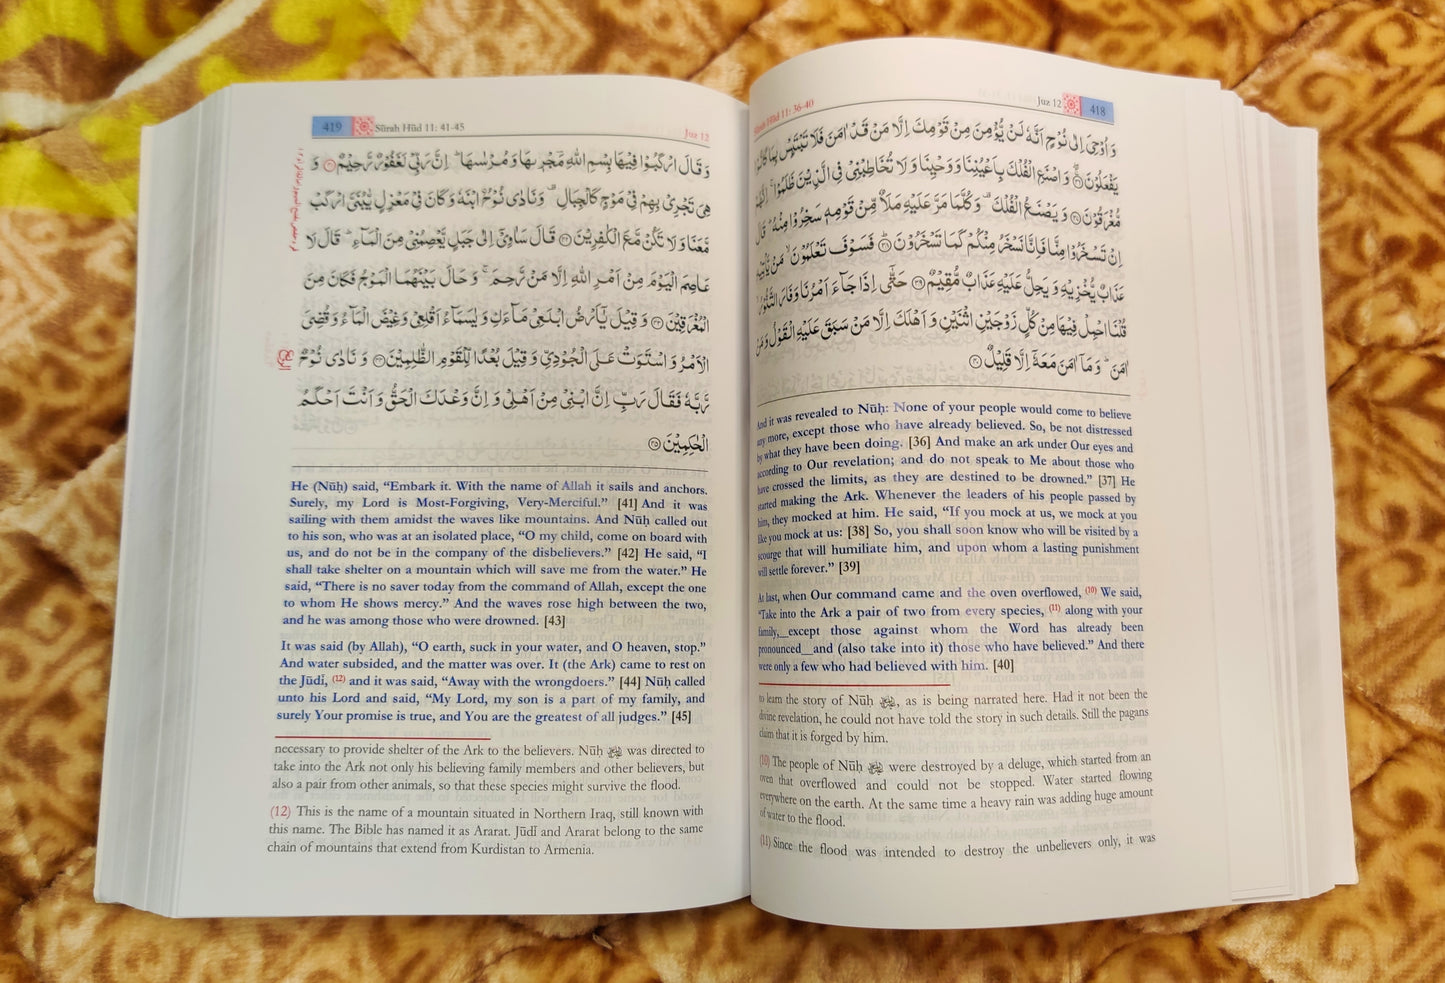 Sūrah Hūd 11: 36-40 Juz 12 418
وَاُوْحِىَ اِلٰى نُوْحٍ اَنَّهٗ لَنْ يُّؤْمِنَ مِنْ قَوْمِكَ اِلَّا مَنْ قَدْ اٰمَنَ فَلَا تَبْتَئِسْ بِمَا كَانُوْا
يَفْعَلُوْنَ ۝٣٦ وَاصْنَعِ الْفُلْكَ بِاَعْيُنِنَا وَوَحْيِنَا وَلَا تُخَاطِبْنِىْ فِى الَّذِيْنَ ظَلَمُوْا ۚ اِنَّهُمْ
مُّغْرَقُوْنَ ۝٣٧ وَيَصْنَعُ الْفُلْكَ ۟ وَكُلَّمَا مَرَّ عَلَيْهِ مَلَاٌ مِّنْ قَوْمِهٖ سَخِرُوْا مِنْهُ ؕ قَالَ
اِنْ تَسْخَرُوْا مِنَّا فَاِنَّا نَسْخَرُ مِنْكُمْ كَمَا تَسْخَرُوْنَ ۝٣٨ فَسَوْفَ تَعْلَمُوْنَ ۙ مَنْ يَّاْتِيْهِ
عَذَابٌ يُّخْزِيْهِ وَيَحِلُّ عَلَيْهِ عَذَابٌ مُّقِيْمٌ ۝٣٩ حَتّٰۤى اِذَا جَآءَ اَمْرُنَا وَفَارَ التَّنُّوْرُ ۙ
قُلْنَا احْمِلْ فِيْهَا مِنْ كُلٍّ زَوْجَيْنِ اثْنَيْنِ وَاَهْلَكَ اِلَّا مَنْ سَبَقَ عَلَيْهِ الْقَوْلُ وَمَنْ
اٰمَنَ ؕ وَمَاۤ اٰمَنَ مَعَهٗۤ اِلَّا قَلِيْلٌ ۝٤٠
And it was revealed to Nūḥ: None of your people would come to believe
any more, except those who have already believed. So, be not distressed
by what they have been doing. [36] And make an ark under Our eyes and
according to Our revelation; and do not speak to Me about those who
have crossed the limits, as they are destined to be drowned.” [37] He
started making the Ark. Whenever the leaders of his people passed by
him, they mocked at him. He said, “If you mock at us, we mock at you
like you mock at us: [38] So, you shall soon know who will be visited by a
scourge that will humiliate him, and upon whom a lasting punishment
will settle forever.” [39]
At last, when Our command came and the oven overflowed, (10) We said,
“Take into the Ark a pair of two from every species, (11) along with your
family,__except those against whom the Word has already been
pronounced__and (also take into it) those who have believed.” And there
were only a few who had believed with him. [40]
to learn the story of Nūḥ ﷺ, as is being narrated here. Had it not been the
divine revelation, he could not have told the story in such details. Still the pagans
claim that it is forged by him.
(10) The people of Nūḥ were destroyed by a deluge, which started from an
oven that overflowed and could not be stopped. Water started flowing
everywhere on the earth. At the same time a heavy rain was adding huge amount
of water to the flood.
(11) Since the flood was intended to destroy the unbelievers only, it was
419 Sūrah Hūd 11: 41-45 Juz 12
وَقَالَ ارْكَبُوْا فِيْهَا بِسْمِ اللّٰهِ مَجْرٖىهَا وَمُرْسٰىهَا ؕ اِنَّ رَبِّىْ لَغَفُوْرٌ رَّحِيْمٌ ۝٤١ وَ
هِىَ تَجْرِىْ بِهِمْ فِىْ مَوْجٍ كَالْجِبَالِ ۟ وَنَادٰى نُوْحٌ اۨبْنَهٗ وَكَانَ فِىْ مَعْزِلٍ يّٰبُنَىَّ ارْكَبْ
مَّعَنَا وَلَا تَكُنْ مَّعَ الْكٰفِرِيْنَ ۝٤٢ قَالَ سَاٰوِىْۤ اِلٰى جَبَلٍ يَّعْصِمُنِىْ مِنَ الْمَآءِ ؕ قَالَ لَا
عَاصِمَ الْيَوْمَ مِنْ اَمْرِ اللّٰهِ اِلَّا مَنْ رَّحِمَ ۚ وَحَالَ بَيْنَهُمَا الْمَوْجُ فَكَانَ مِنَ
الْمُغْرَقِيْنَ ۝٤٣ وَقِيْلَ يٰۤاَرْضُ ابْلَعِىْ مَآءَكِ وَيٰسَمَآءُ اَقْلِعِىْ وَغِيْضَ الْمَآءُ وَقُضِىَ
الْاَمْرُ وَاسْتَوَتْ عَلَى الْجُوْدِىِّ وَقِيْلَ بُعْدًا لِّلْقَوْمِ الظّٰلِمِيْنَ ۝٤٤ وَنَادٰى نُوْحٌ
رَّبَّهٗ فَقَالَ رَبِّ اِنَّ ابْنِىْ مِنْ اَهْلِىْ وَاِنَّ وَعْدَكَ الْحَقُّ وَاَنْتَ اَحْكَمُ
الْحٰكِمِيْنَ ۝٤٥
He (Nūḥ) said, “Embark it. With the name of Allah it sails and anchors.
Surely, my Lord is Most-Forgiving, Very-Merciful.” [41] And it was
sailing with them amidst the waves like mountains. And Nūḥ called out
to his son, who was at an isolated place, “O my child, come on board with
us, and do not be in the company of the disbelievers.” [42] He said, “I
shall take shelter on a mountain which will save me from the water.” He
said, “There is no saver today from the command of Allah, except the one
to whom He shows mercy.” And the waves rose high between the two,
and he was among those who were drowned. [43]
It was said (by Allah), “O earth, suck in your water, and O heaven, stop.”
And water subsided, and the matter was over. It (the Ark) came to rest on
the Jūdī, (12) and it was said, “Away with the wrongdoers.” [44] Nūḥ called
unto his Lord and said, “My Lord, my son is a part of my family, and
surely Your promise is true, and You are the greatest of all judges.” [45]
necessary to provide shelter of the Ark to the believers. Nūḥ was directed to
take into the Ark not only his believing family members and other believers, but
also a pair from other animals, so that these species might survive the flood.
(12) This is the name of a mountain situated in Northern Iraq, still known with
this name. The Bible has named it as Ararat. Jūdī and Ararat belong to the same
chain of mountains that extend from Kurdistan to Armenia.